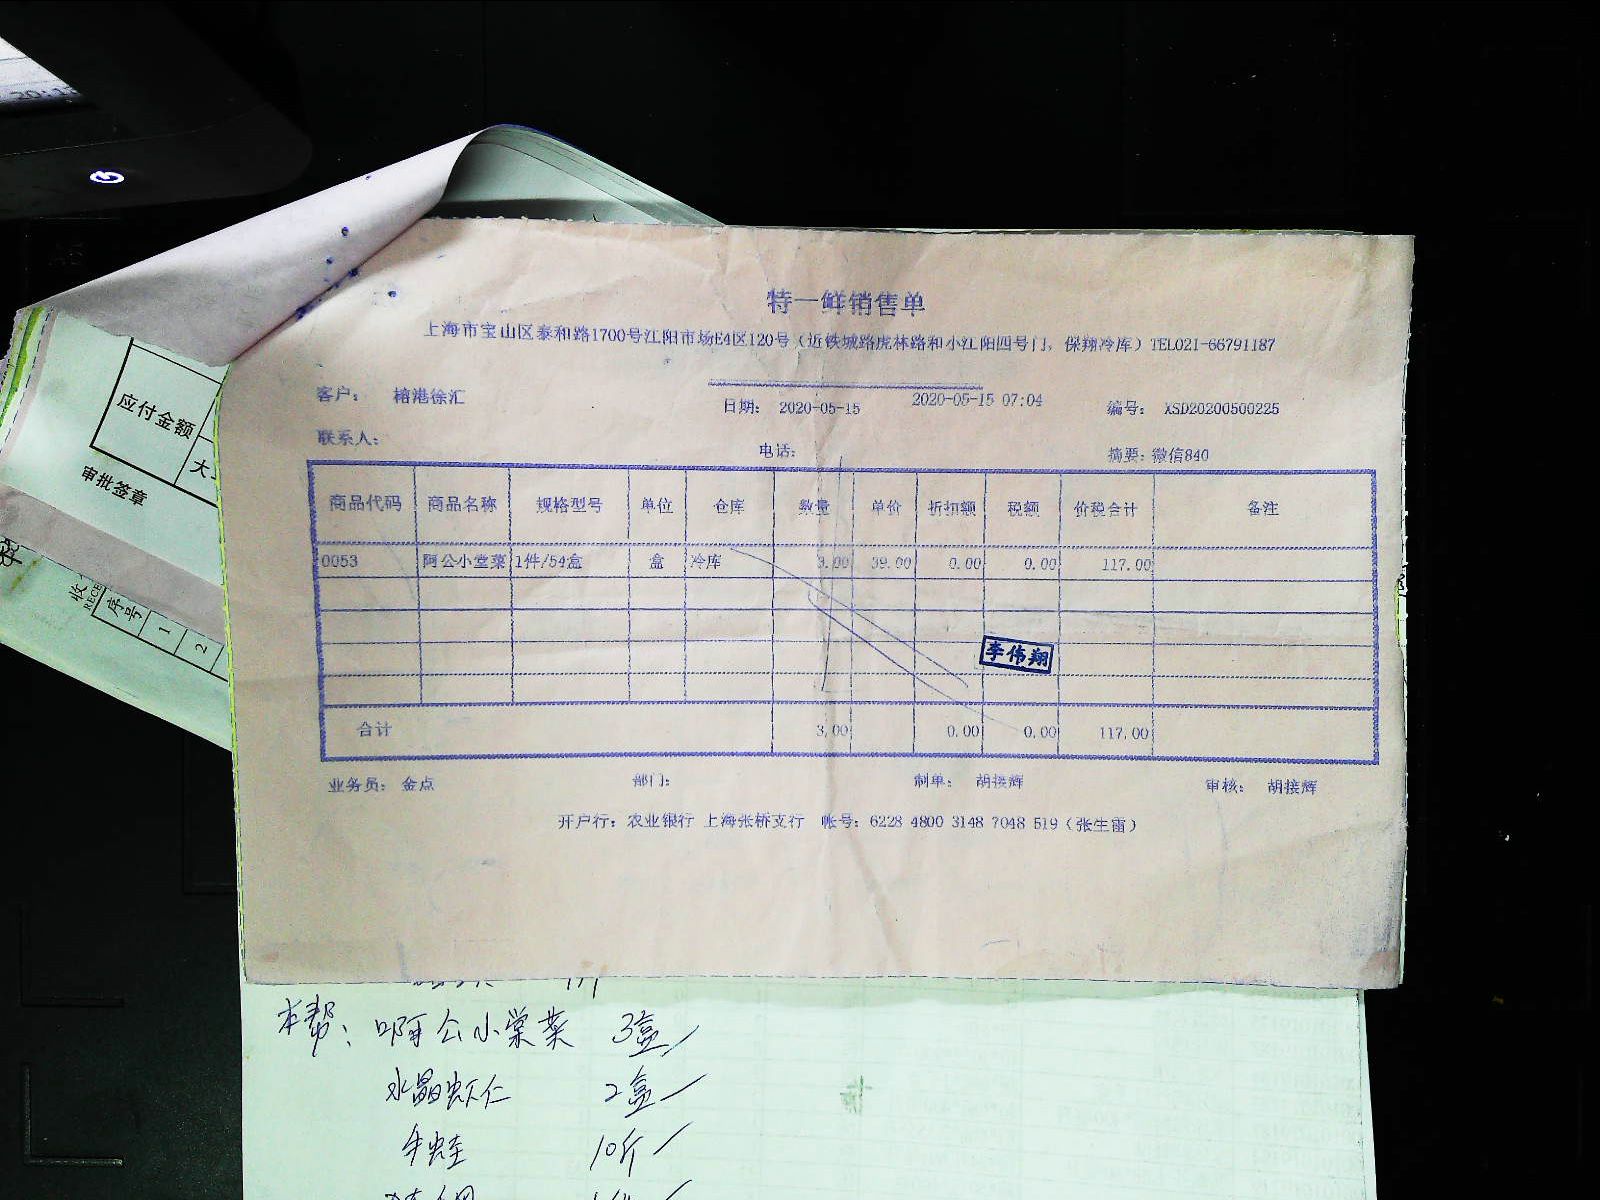 应付金额
大
审批签章
收
RECE
序号
1
2
特一鲜销售单
上海市宝山区泰和路1700号江阳市场E4区120号（近铁城路虎林路和小江阳四号门，保翔冷库）TEL021-66791187
客户： 榕港徐汇 日期： 2020-05-15 2020-05-15 07:04 编号： XSD20200500225
联系人： 电话： 摘要：微信840
商品代码 商品名称 规格型号 单位 仓库 数量 单价 折扣额 税额 价税合计 备注
0053 阿公小堂菜 1件/54盒 盒 冷库 3.00 39.00 0.00 0.00 117.00
李伟翔
合计 3.00 0.00 0.00 117.00
业务员： 金点 部门： 制单： 胡接辉 审核： 胡接辉
开户行：农业银行 上海张桥支行 帐号：6228 4800 3148 7048 519（张生雷）
本帮：啊公小棠菜 3盒
水晶虾仁 2盒
牛蛙 10斤